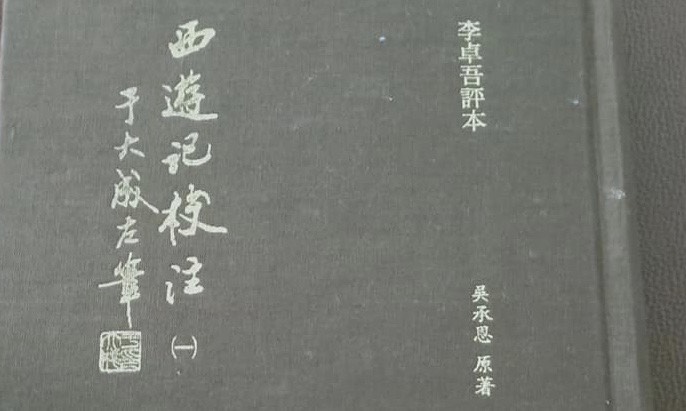 李卓吾評本
吳承恩 原著
西遊記校注 ㈠
于大成左筆